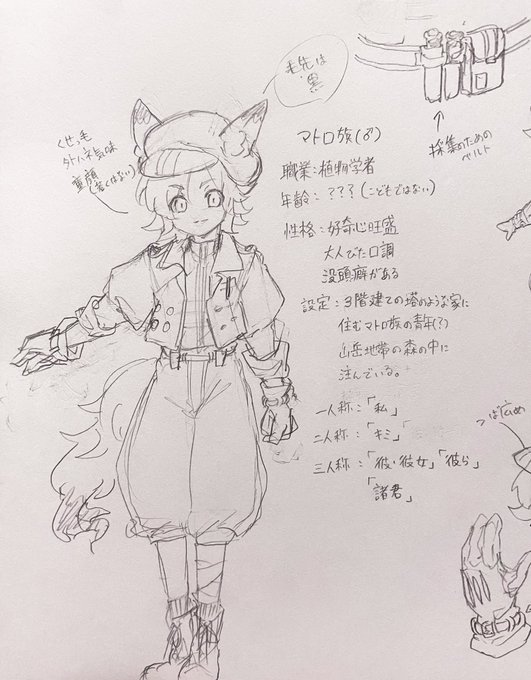 毛先は
黒
くせっ毛
外ハネ気味
童顔
(若くはない)
採集のための
ベルト
マトロ族(♂)
職業:植物学者
年齢:???(こどもではない)
性格:好奇心旺盛
大人びた口調
没頭癖がある
設定:3階建ての塔のような家に
住むマトロ族の青年(?)
山岳地帯の森の中に
注んでいる。
一人称:「私」
二人称:「キミ」
三人称:「彼・彼女」「彼ら」
「諸君」
つば広め